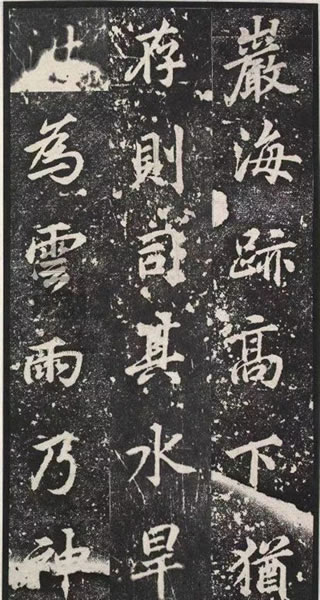 巖海跡高下猶
存則司其水旱
為雲雨乃神